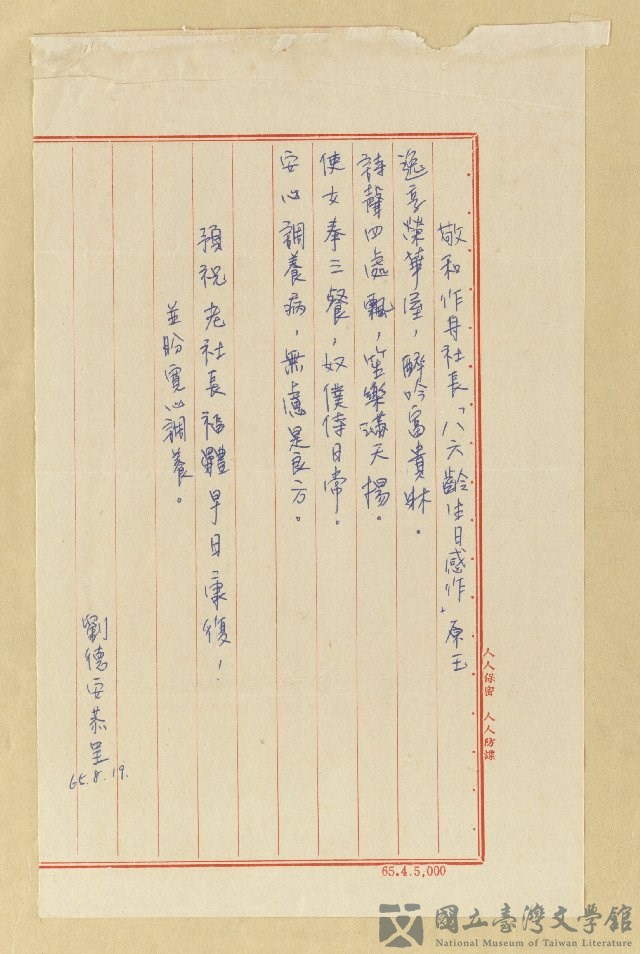 敬和作舟社長「八六齡生日感作」原玉
逸享榮華屋，醉吟富貴財．
詩聲四處飄，笙樂滿天揚。
使女奉三餐，奴僕侍日常。
安心調養病，無慮是良方。
預祝老社長福體早日康復！
並盼寬心調養。
劉德安恭呈
65.8.19.
人人保密 人人防諜
65.4.5,000
國立臺灣文學館
National Museum of Taiwan Literature